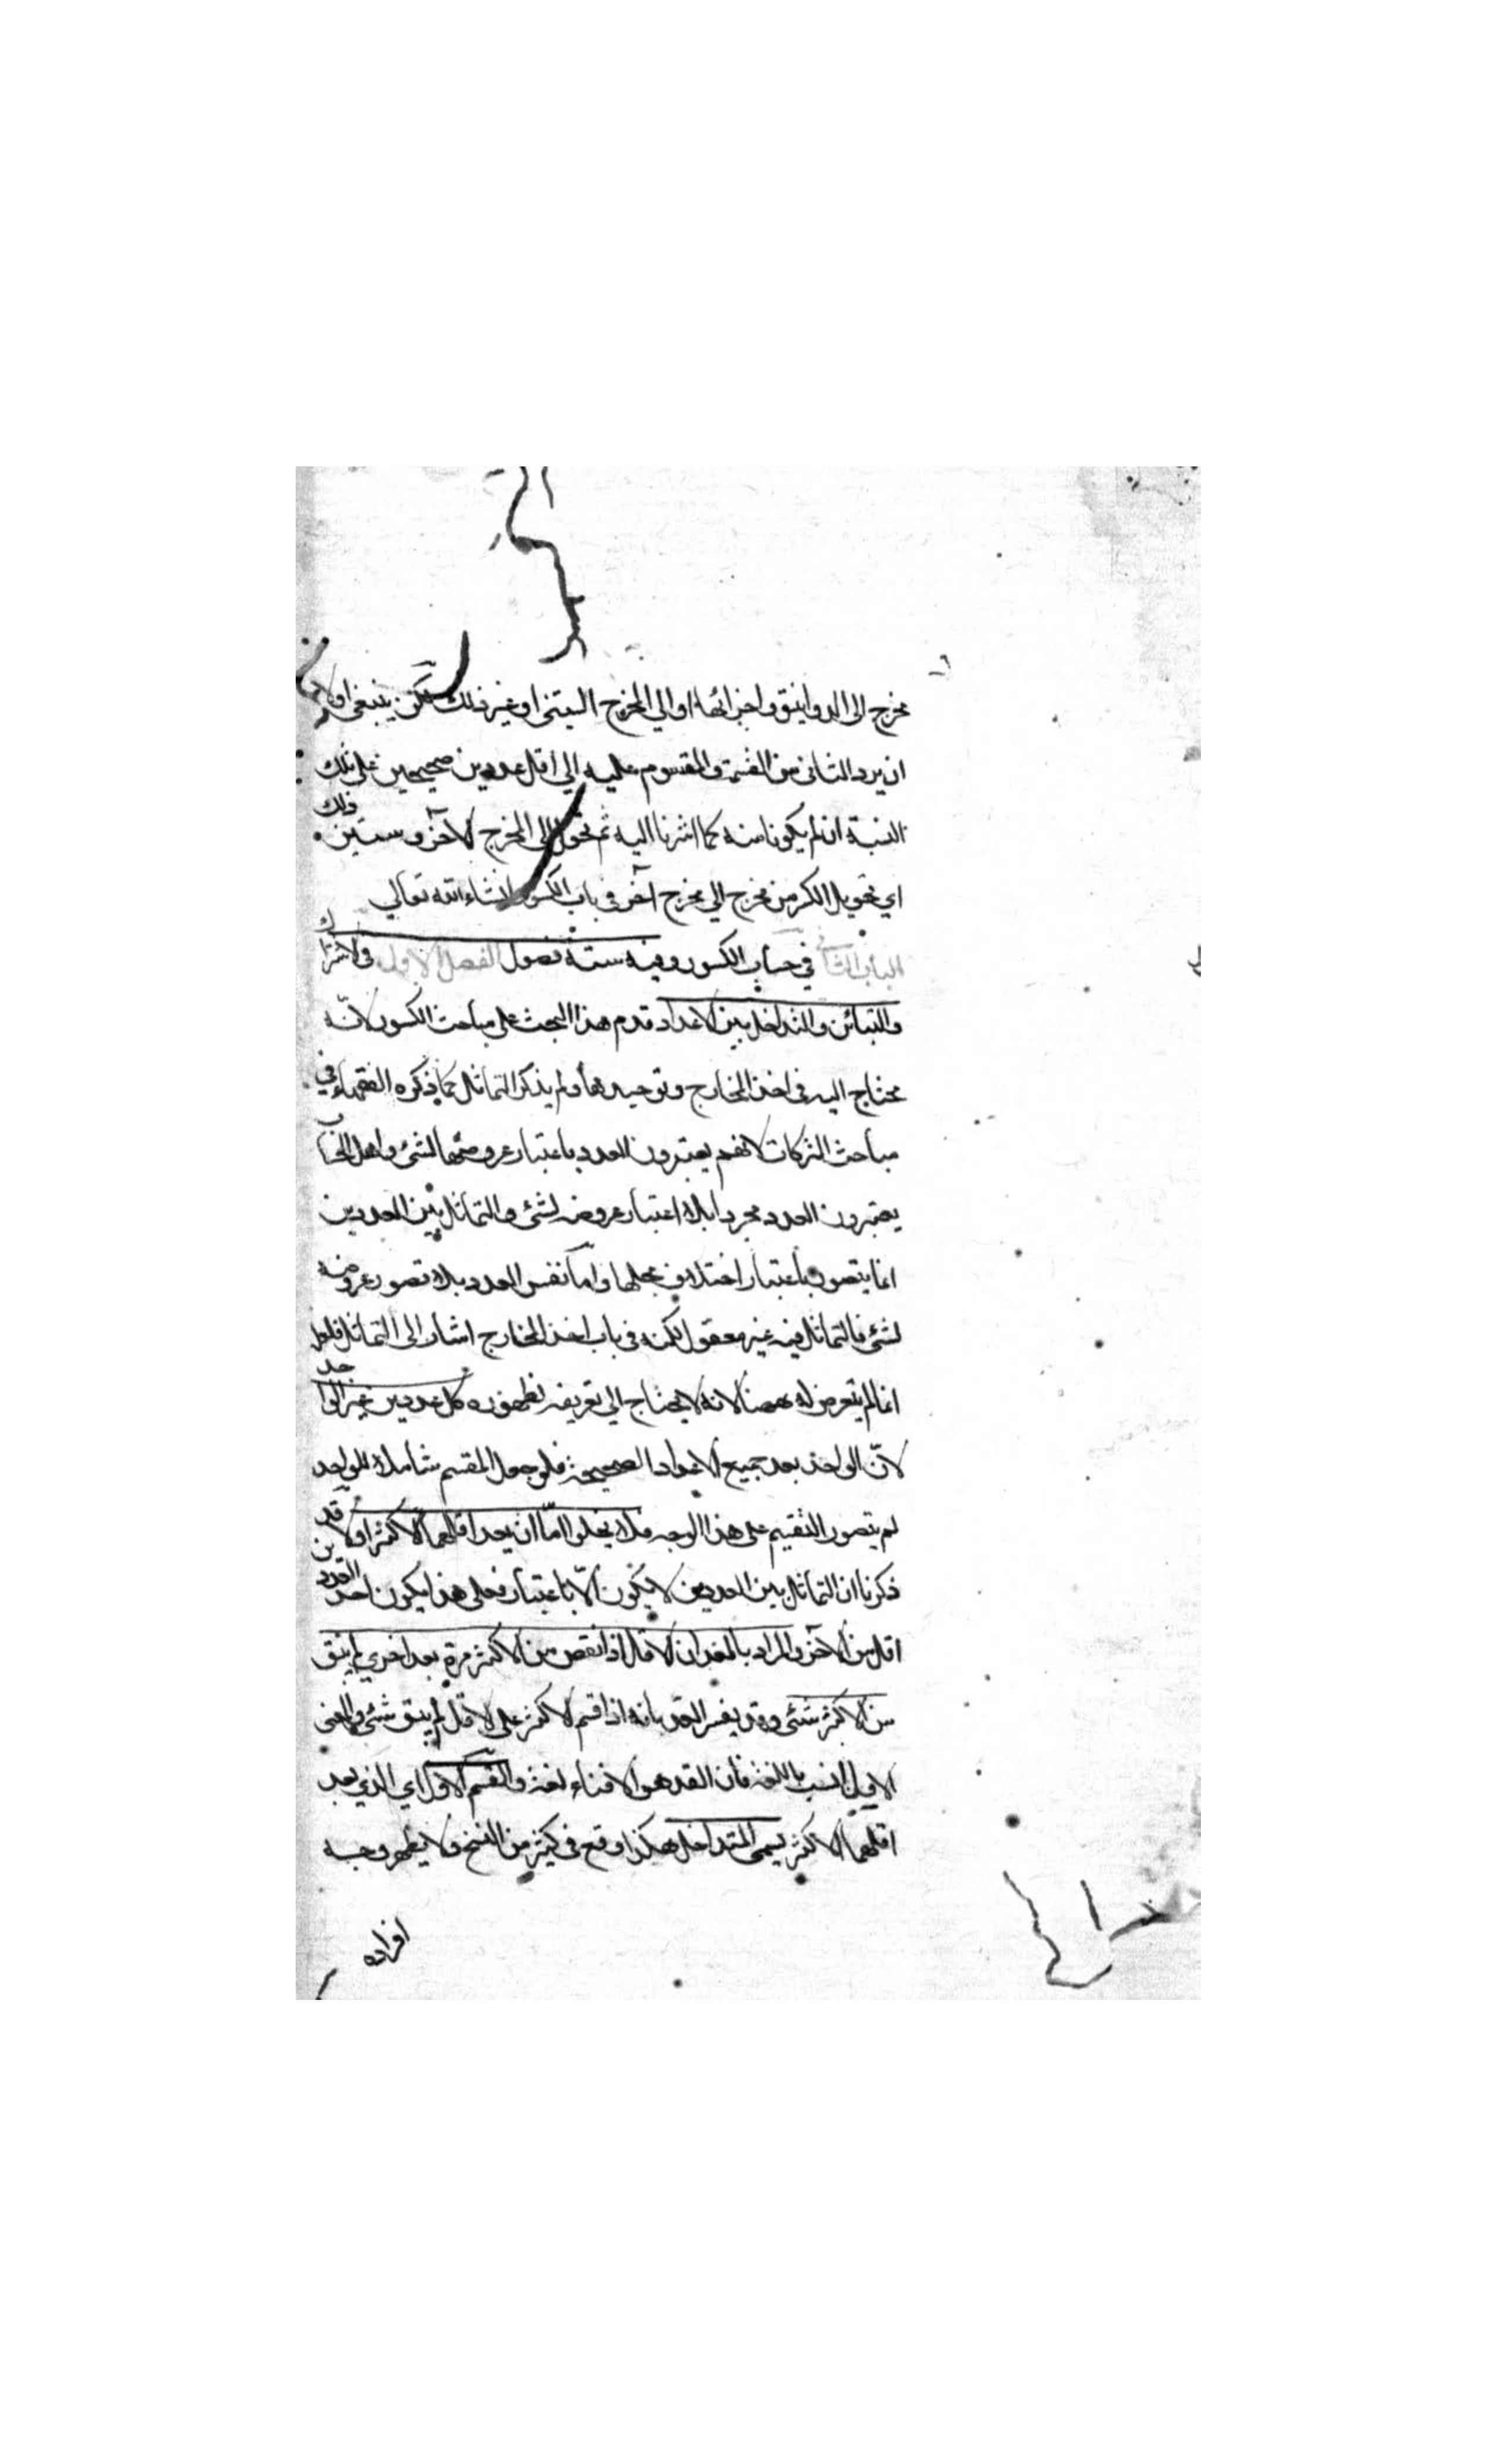 مخرج الى الدوانيق واجزائها او الى المخرج الستيني او غير ذلك لكن ينبغي اولا
ان يرد الثاني من القسمة والمقسوم عليه الى اقل عددين صحيحين على تلك
النسبة ان لم يكونا منه كما اشرنا اليه ثم تحول الى المخرج الآخر وستبين ذلك
اي تحويل الكسر من مخرج الى مخرج آخر في باب الكسور انشاء الله تعالى
الباب الثاني في حساب الكسور وفيه ستة فصول الفصل الاول في الاشتراك
والتبائن والتداخل بين الاعداد قدم هذا البحث على مباحث الكسور لانّه
محتاج اليه في اخذ المخارج وتوحيدها ولم يذكر التماثل كما ذكره الفقهاء في
مباحث التركات لانهم يعتبرون العدد باعتبار عروضها لشئ واهل الحساب
يعتبرون العدد مجردا بلا اعتبار عروضه لشئ والتماثل بين العددين
انما يتصور باعتبار اختلاف محلها واما نفس العدد بلا تصور عروضه
لشئ فالتماثل فيه غير معقول لكنه في باب اخذ المخارج اشار الى التماثل فلعل
انما لم يتعرض له ههنا لانه لا يحتاج الى تعريف لظهوره كل عددين غير الواحد
لانّ الواحد يعد جميع الاعداد الصحيحة فلو جعل المقسم شاملا للواحد
لم يتصور التقسيم على هذا الوجه فلا يخلو امّا ان يعد اقلهما الاكثر او لا قد
ذكرنا ان التماثل بين العددين لا يكون الّا باعتبار فعلى هذا يكون احد العددين
اقل من الآخر والمراد بالعد ان الاقل اذا نقص من الاكثر مرة بعد اخرى لم يبق
من الاكثر شئ وقد يفسر العد بانه اذا قسم الاكثر على الاقل لم يبق شئ والمعنى
الاول انسب باللغة فان العد هو الافناء لغة والقسم الاول اي الذي يعد
اقلهما الاكثر يسمى المتداخل هكذا وقع في كثير من النسخ ولا يظهر وجه
افراده